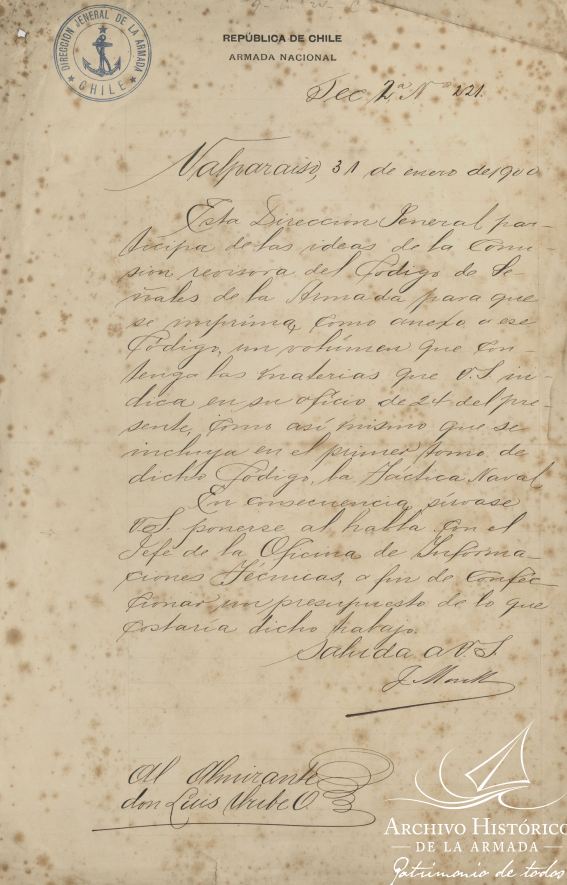 DIRECCION JENERAL DE LA ARMADA
CHILE
REPÚBLICA DE CHILE
ARMADA NACIONAL
Sec 2ª Nº 221.
Valparaiso, 31 de enero de 1900
Esta Direccion Jeneral par-
ticipa de las ideas de la Comi-
sion revisora del Código de Se-
ñales de la Armada para que
se imprima, como anexo a ese
Código, un volúmen que con-
tenga las materias que V.S. in-
dica en su oficio de 24 del pre-
sente, como así mismo que se
incluya en el primer tomo de
dicho Código, la Táctica Naval
En consecuencia, sírvase
V.S. ponerse al habla con el
Jefe de la Oficina de Informa-
ciones Técnicas, a fin de confec-
cionar un presupuesto de lo que
costaria dicho trabajo.
Saluda a V.S
J. Montt
Al Almirante
don Luis Uribe O
ARCHIVO HISTÓRICO
DE LA ARMADA
Patrimonio de todos